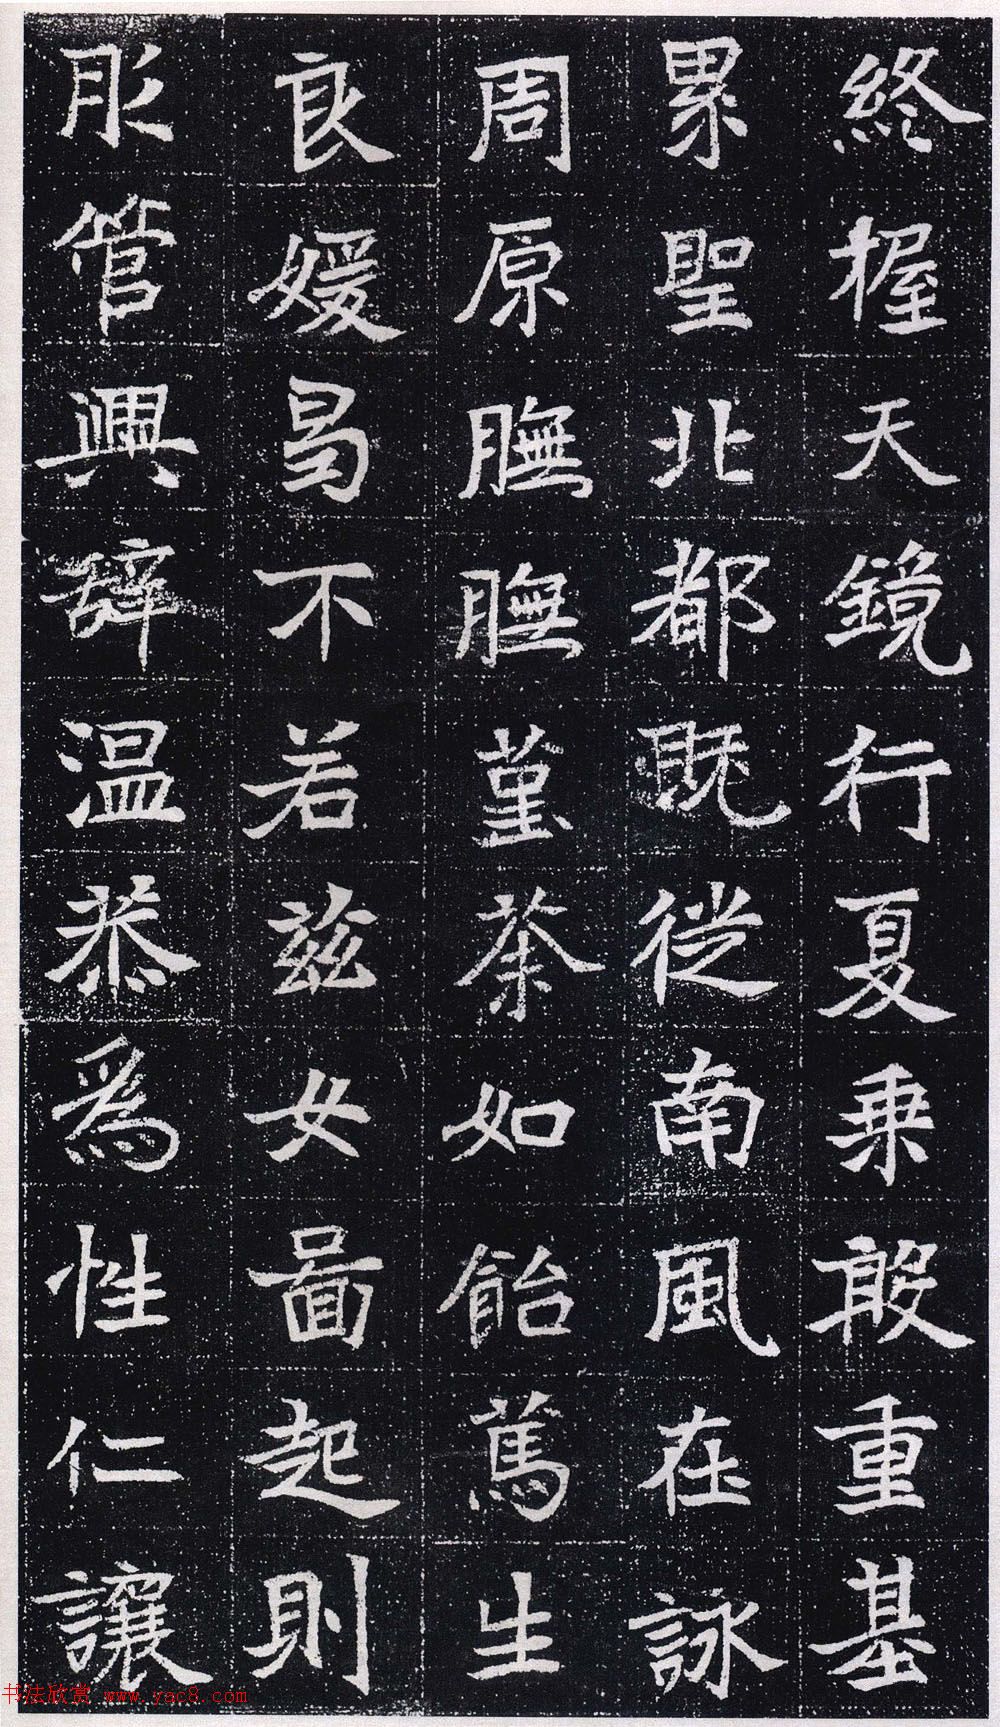 終握天鏡行夏乗敢重基
累聖北都既従南風在詠
周原膴膴堇荼如飴篤生
良媛曷不若茲女啚起則
肜管興辞温恭爲性仁讓
书法欣赏 www.yac8.com